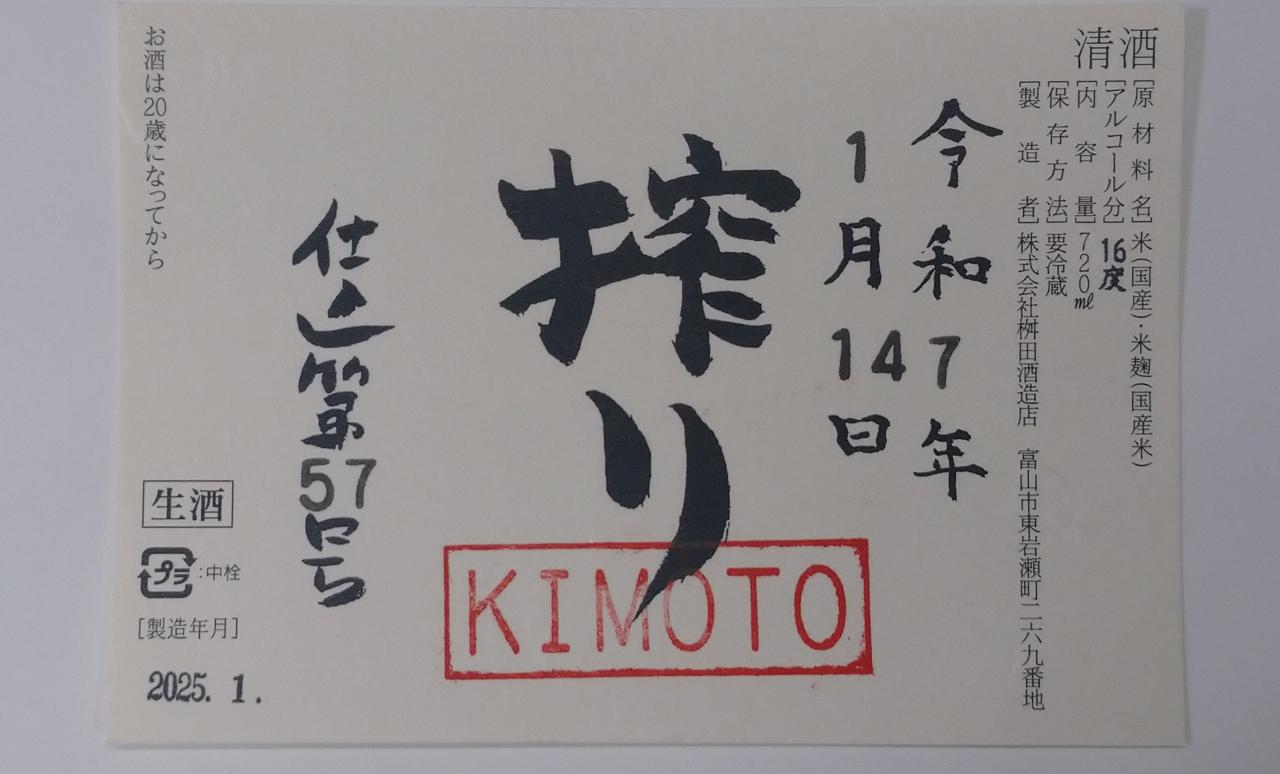 清酒
[原材料名]米(国産)・米麹(国産米)
[アルコール分]16度
[内容量]720㎖
[保存方法]要冷蔵
[製造者]株式会社桝田酒造店 富山市東岩瀬町二六九番地
令和7年
1月14日
搾り
KIMOTO
仕込第57号
お酒は20歳になってから
生酒
プラ:中栓
[製造年月]
2025. 1.